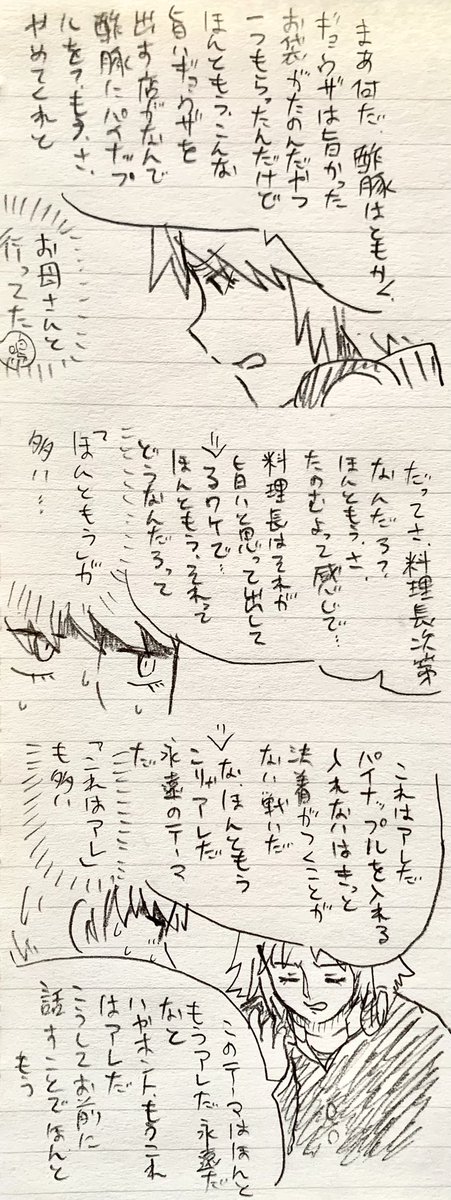 まあ何だ、酢豚はともかく、
ギョウザは旨かった
お袋がたのんだやつ
一つもらったんだけど
ほんともう、こんな
旨いギョウザを
出す店がなんで
酢豚にパイナップ
ルを?もう、さ、
やめてくれと
お母さんと
行ってた
だってさ、料理長次第
なんだろ?
ほんともう、さ、
たのむよって感じで…
料理長はそれが
旨いと思って出して
るワケで…
ほんともう、それって
どうなんだろって
「ほんともう」が
多い…
これはアレだ
パイナップルを入れる
入れないはきっと
決着がつくことが
ない戦いだ
な、ほんともう
こりゃアレだ
永遠のテーマ
だ
「これはアレ」
も多い
このテーマはほんと
もうアレだ永遠だ
なと
いやホント、もうこれ
はアレだ
こうしてお前に
話すことでほんと
もう